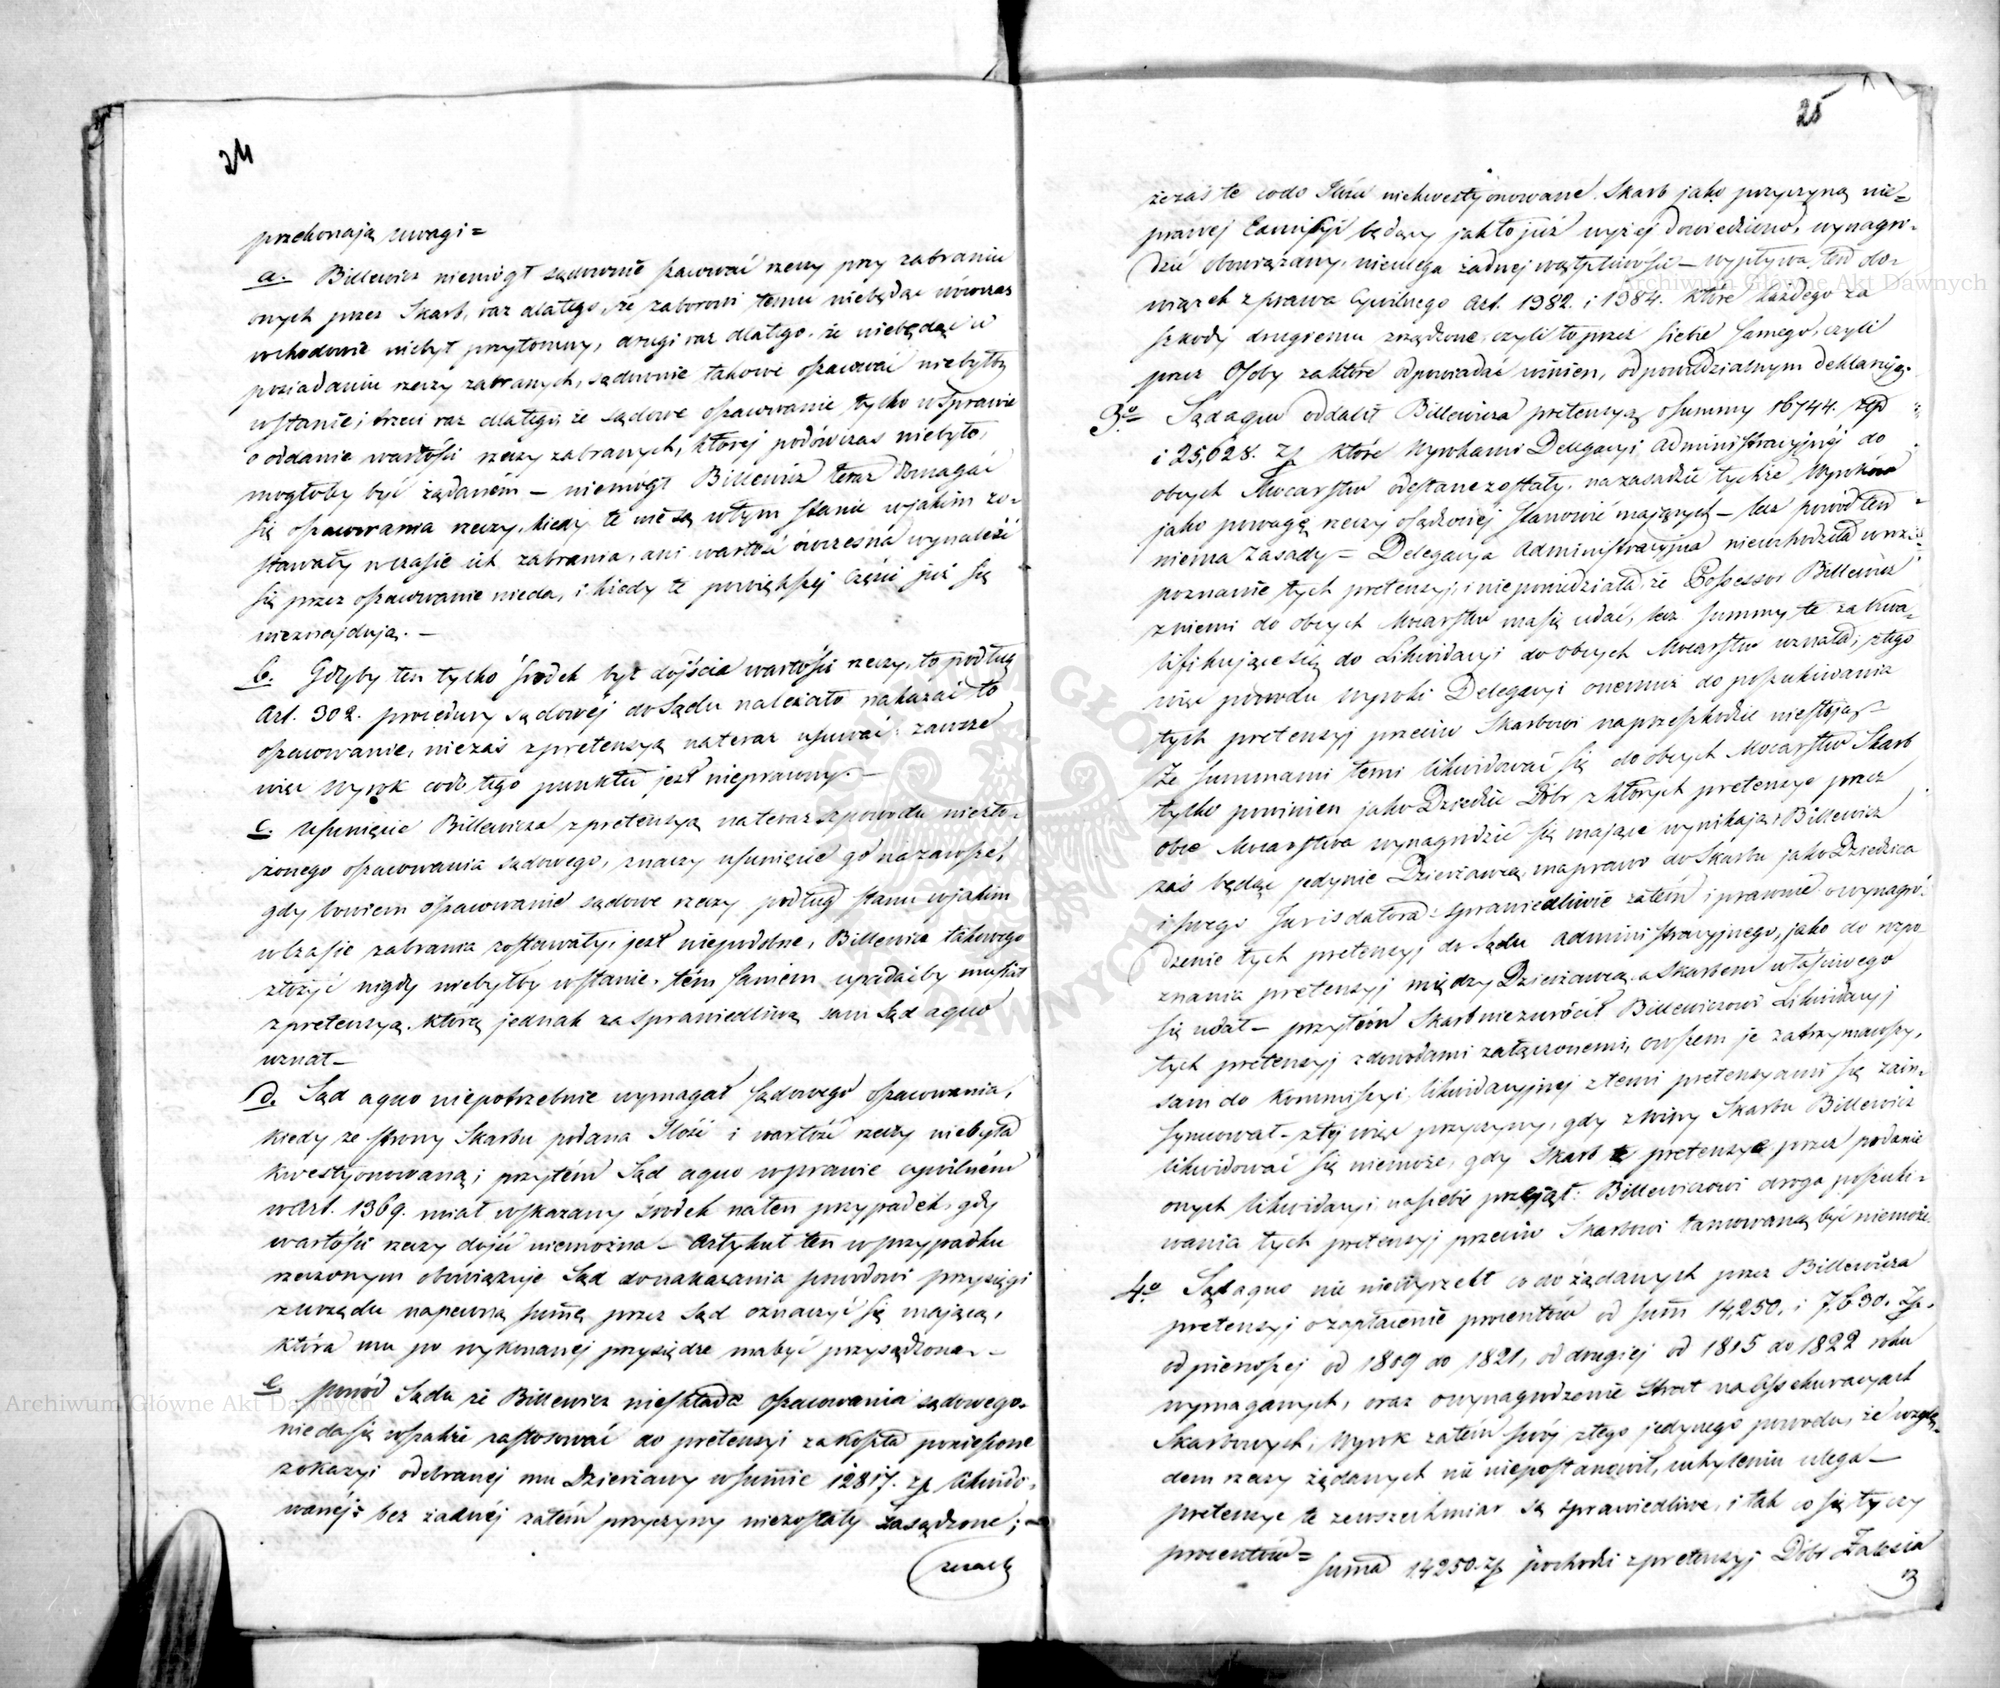 24
przekonają uwagi =
a. Billewicz niemógł sądownie szacować rzeczy przy zabraniu
onych przez Skarb, raz dlatego, że zaborowi temu niebędąc wówczas
wchodowie niebył przytomny, drugi raz dlatego, że niebędąc w
posiadaniu rzeczy zabranych, sądownie takowe oszacować niebyłby
wstanie; trzeci raz dlatego, że sądowe oszacowanie tylko wsprawie
o oddanie wartości rzeczy zabranych, której podówczas niebyło,
mogłoby być żądaném — niemógł Billewicz teraz domagać
się oszacowania rzeczy, kiedy te nie są wtym stanie wjakim zo-
stawały wczasie ich zabrania, ani wartość owczesna wynaleść
się przez oszacowanie nieda, i kiedy te powiększéj części już się
nieznajdują. —
b. Gdyby ten tylko środek był dojścia wartości rzeczy, to podług
Art. 302. procedury sądowéj do Sądu należało nakazać to
oszacowanie, niezaś zpretensyą nateraz usuwać; zawsze
więc Wyrok codo tego punktu jest nieprawny. —
c. Usunięcie Billewicza zpretensyą nateraz zpowodu niezło-
żonego oszacowania sądowego, znaczy usunięcie go nazawsze,
gdy bowiem oszacowanie sądowe rzeczy podług stanu wjakim
wczasie zabrania zostawały, jest niepodobne, Billewicz takowego
złożyć nigdy niebyłby wstanie, tém samem upadaćby musiał
zpretensyą, którą jednak za sprawiedliwą sam Sąd aquo
uznał —
d. Sąd aquo niepotrzebnie wymagał sądowego oszacowania,
kiedy ze strony Skarbu podana Ilość i wartość rzeczy niebyła
kwestyonowaną; przytém Sąd aquo wprawie cywilném
w Art. 1369. miał wskazany środek naten przypadek, gdy
wartości rzeczy dojść niemożna — Artykuł ten wprzypadku
rzeczonym obowiązuje Sąd do nakazania powodowi przysięgi
zurzędu napewną summę przez Sąd oznaczyć się mającą,
która mu po wykonanej przysiędze mabyć przysądzona. —
e. powód Sądu że Billewicz nieskłada oszacowania sądowego,
nieda się wszakże zastosować do pretensyi za koszta poniesione
zokazyi odebranej mu Dzierżawy wsummie 12817. zp likwido-
wanéj; bez żadnéj zatém przyczyny niezostały zasądzone; —
zezaś
25
żezaś te codo Ilości niekwestyonowane Skarb jako przyczyną nie-
prawej Ewikcyi będący jak to już wyżej dowiedziono, wynagro-
dzić obowiązany, nieulega żadnej wątpliwości — wypływa ten obo-
wiązek z prawa Cywilnego Art. 1382. i 1384. które każdego za
szkody drugiemu zrządzone, czyli to przez siebie samego, czyli
przez Osoby zaktóre odpowiadać winien, odpowiedzialnym deklarują.
3o Sąd aquo oddalił Billewicza pretensyą o Summy 16744. zp
i 25,628. zp które Wyrokami Delegacyi Administracyjnéj do
obcych Mocarstw odesłane zostały, nazasadzie tychże Wyroków
jako powagę rzeczy osądzonéj stanowić mających — lecz powód ten
niema zasady = Delegacya Administracyjna niewchodziła wroz-
poznanie tych pretensyi, i niepowiedziała, że Possessor Billewicz
zniemi do obcych Mocarstw masię udać, lecz summy te zakwa-
lifikujące się do Likwidacyi do obcych Mocarstw uznała; ztego
więc powodu wyroki Delegacyi onemuż do poszukiwania
tych pretensyj przeciw Skarbowi naprzeszkodzie niestoją —
Ze summami temi likwidować się do obcych Mocarstw Skarb
tylko powinien jako Dziedzic Dóbr zktórych pretensye przez
obce Mocarstwa wynagrodzić się mające wynikają, Billewicz
zaś będąc jedynie Dzierżawcą, ma prawo do Skarbu jako Dziedzica
i swego Jurisdatora: sprawiedliwie zatém i prawnie o wynagro-
dzenie tych pretensyj do Sądu Administracyjnego, jako do rozpo
znania pretensyj między Dzierżawcą a Skarbem właściwego
się udał — przytém Skarb niezwrócił Billewiczowi Likwidacyj
tych pretensyj zdowodami załączonemi, owszem je zatrzymawszy,
sam do Kommissyi likwidacyjnéj ztemi pretensyami się zain-
synuował — ztéj więc przyczyny, gdy zwiny Skarbu Billewicz
likwidować się niemoże, gdy Skarb te pretensye przez podanie
onych likwidacyi nasiebie przejął: Billewiczowi droga poszuki-
wania tych pretensyj przeciw Skarbowi tamowaną być niemoże.
4o Sąd aquo nic niewyrzekł co do żądanych przez Billewicza
pretensyj o zapłacenie procentów od summ 14,250. i 7,630. zp.
odpierwszej od 1809 do 1821, od drugiej od 1815 do 1822 roku
wymaganych, oraz owynagrodzenie strat na Assekuracyach
Skarbowych; Wyrok zatém swój ztego jedynego powodu, że wzglę-
dem rzeczy żądanych nic niepostanowił, uchyleniu ulega —
pretensye te zewszechmiar są sprawiedliwe, i tak co się tyczy
procentów =
Summa 14250. zp pochodzi zpretensyj Dóbr Zalesia
Archiwum Główne Akt Dawnych
Archiwum Główne Akt Dawnych